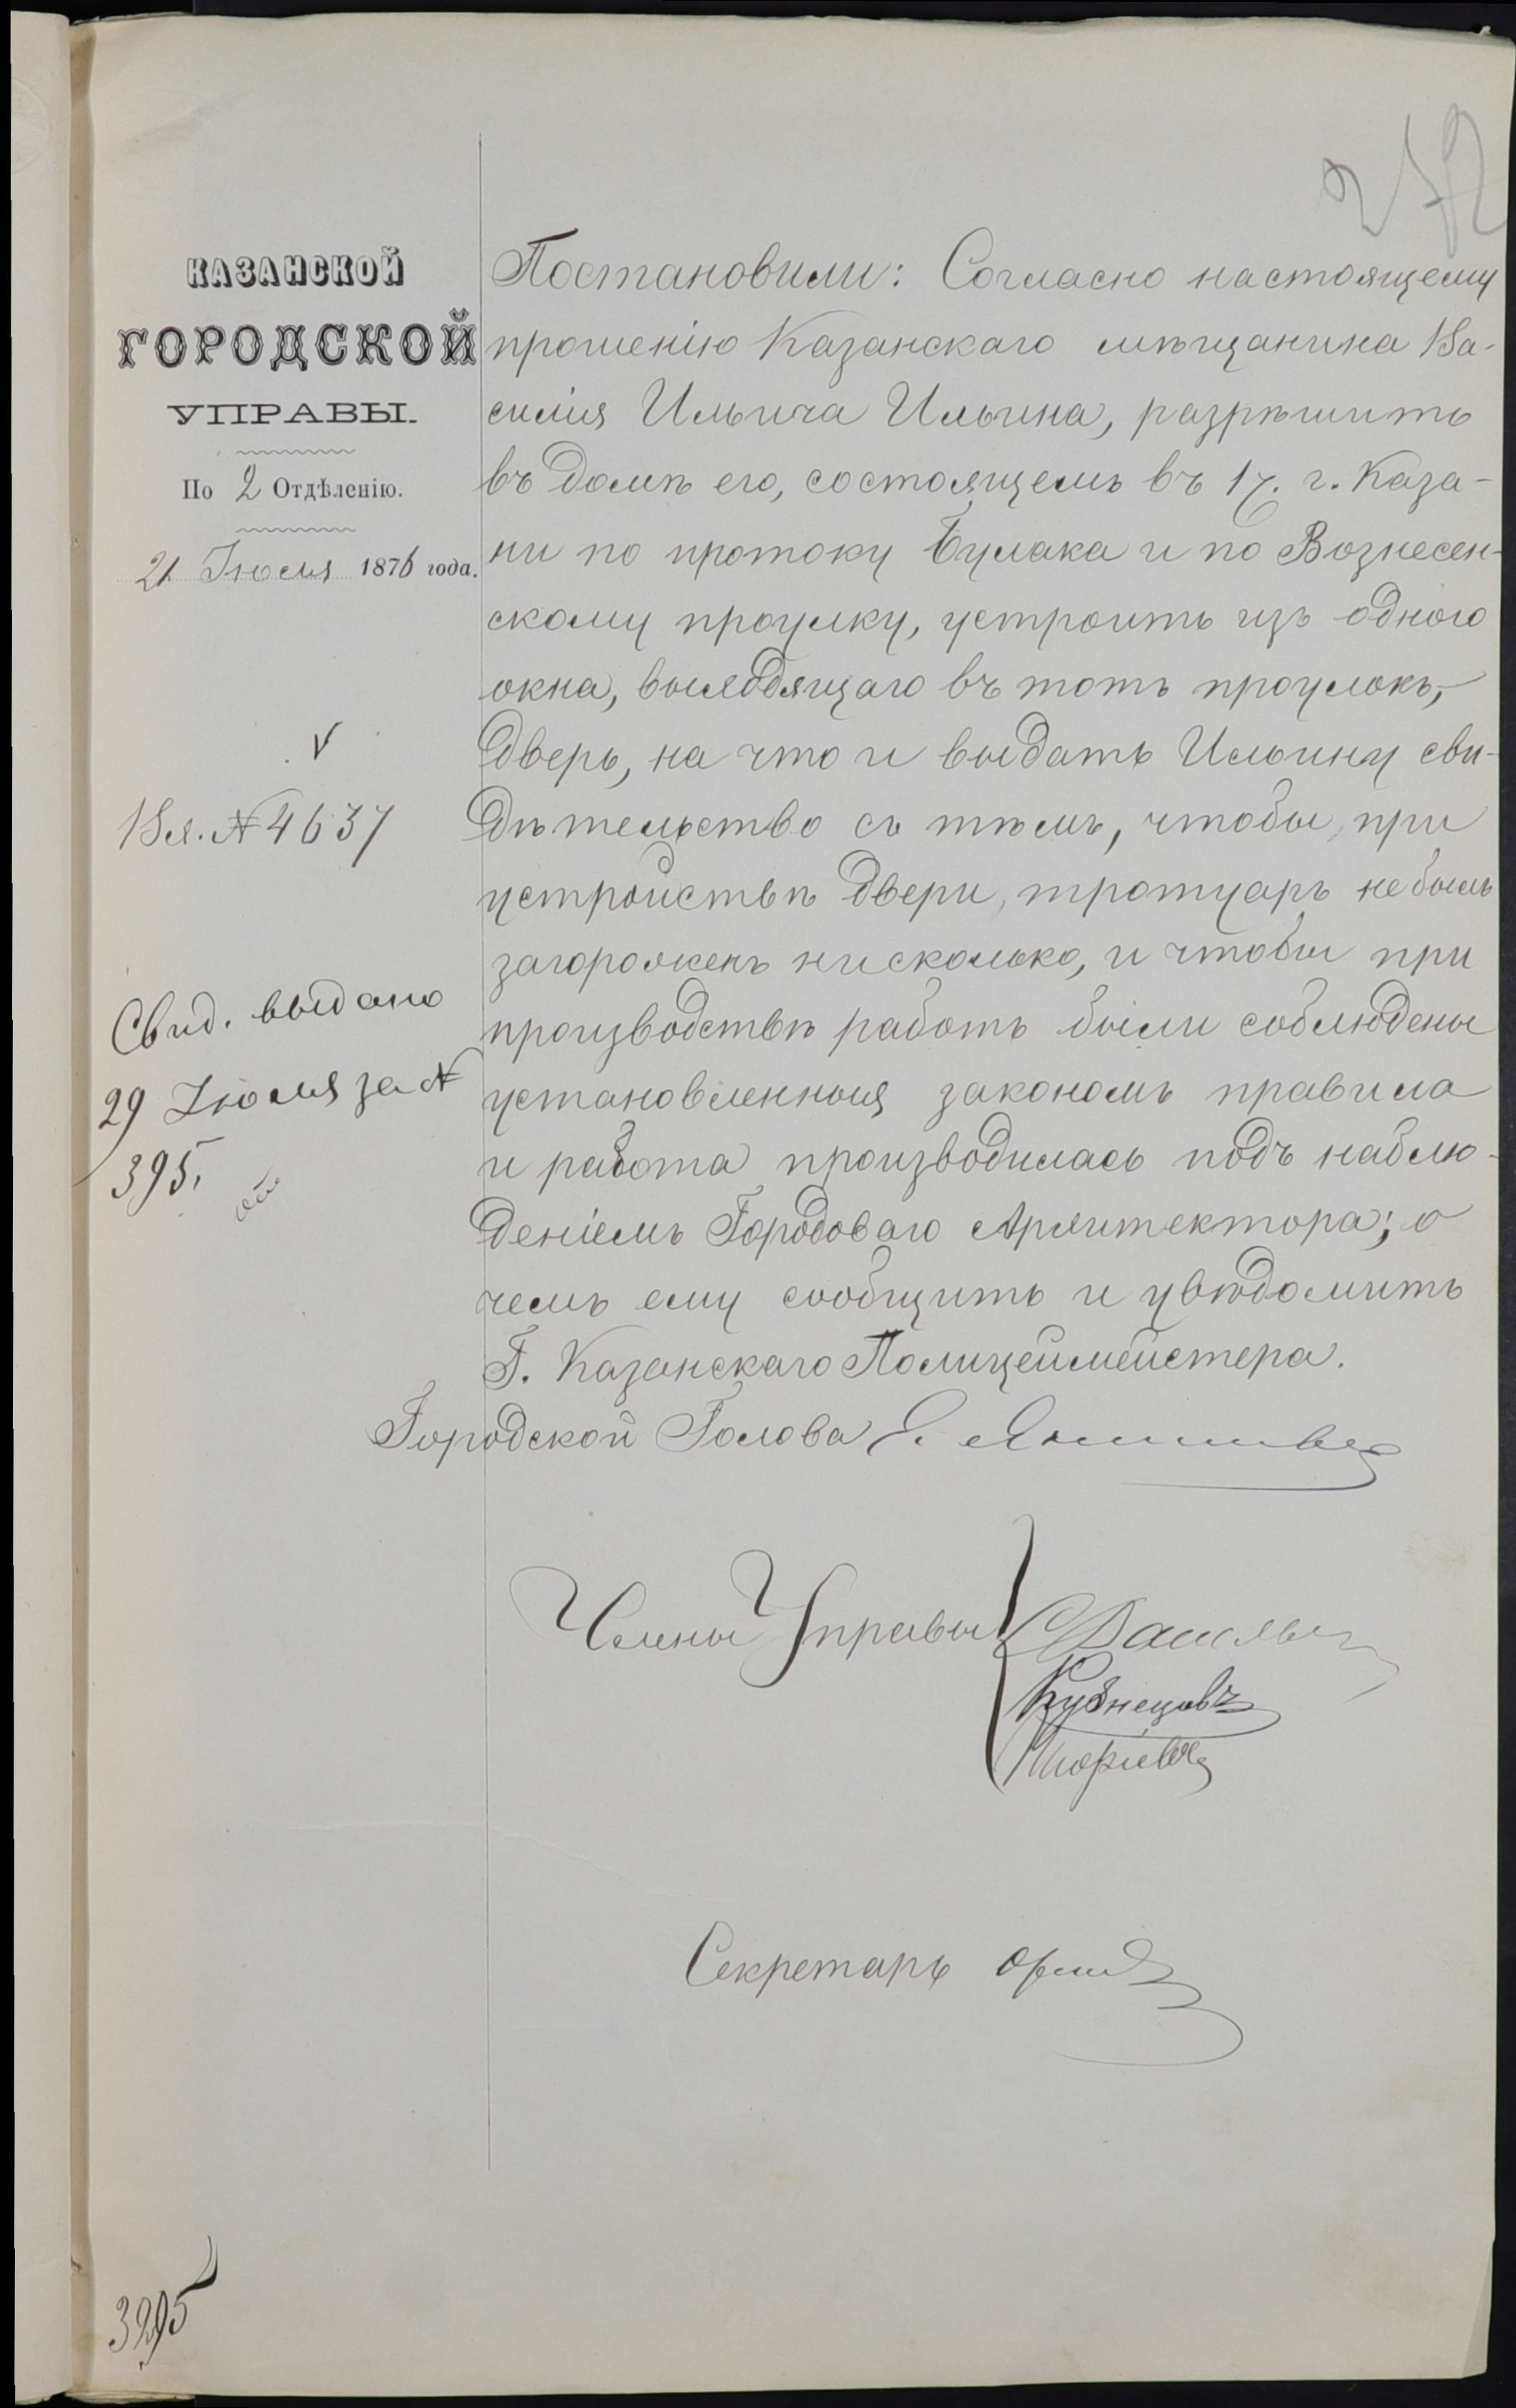 272
КАЗАНСКОЙ
ГОРОДСКОЙ
УПРАВЫ.
По 2 Отдѣленію.
21 Іюля 1876 года.
Вх. № 4637
Свид. выдано
29 Іюля за №
395.
Постановили: Согласно настоящему
прошенію Казанскаго мѣщанина Ва-
силія Ильича Ильина, разрѣшить
въ домѣ его, состоящемъ въ 1 ч. г. Каза-
ни по протоку Булака и по Вознесен-
скому проулку, устроить изъ одного
окна, выходящаго въ тотъ проулокъ,
дверь, на что и выдать Ильину сви-
дѣтельство съ тѣмъ, чтобы, при
устройствѣ двери, тротуаръ не былъ
загороженъ нисколько, и чтобы при
производствѣ работъ были соблюдены
установленныя закономъ правила
и работа производилась подъ наблю-
деніемъ Городоваго Архитектора; о
чемъ ему сообщить и увѣдомить
Г. Казанскаго Полицеймейстера.
Городской Голова Э. Янишевскій
Члены Управы
Кузнецовъ
Секретарь
3995